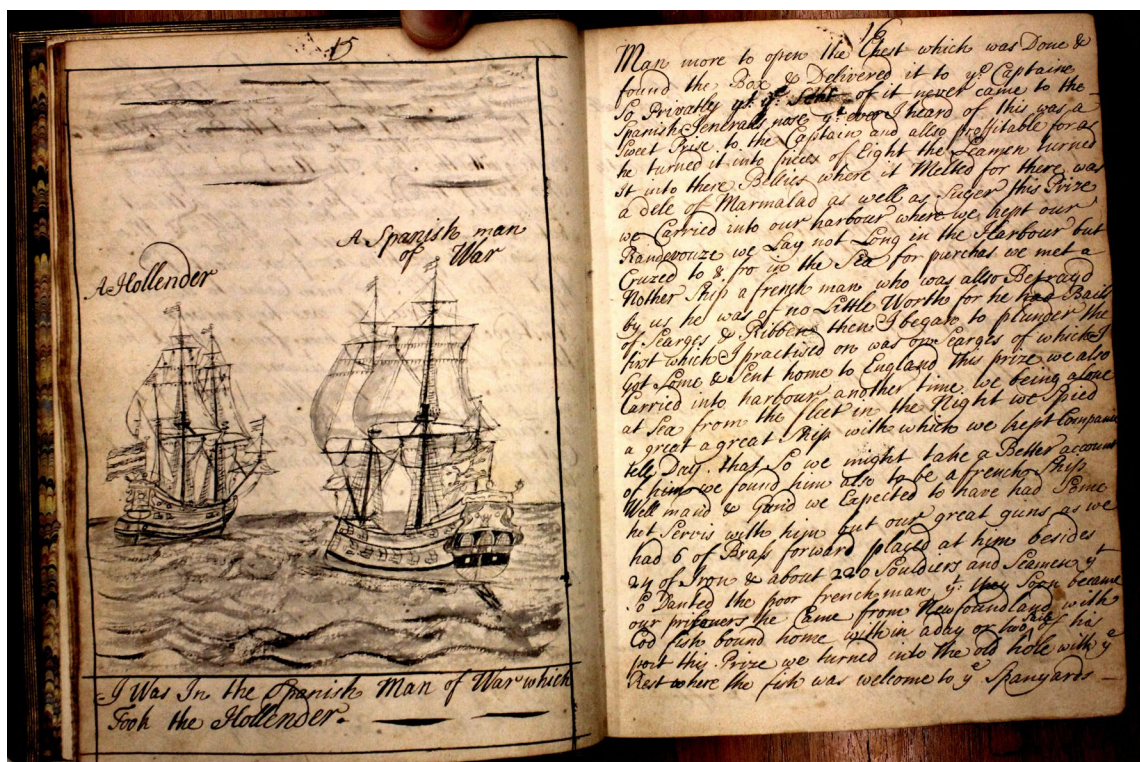 15
A Spanish man
of War
A Hollender
I Was In the Spanish Man of War which
Took the Hollender.
16
Man more to open the Chest which was Done &
found the Box & Delivered it to yᵉ Captaine
So Privatly yᵗ yᵉ of it never came to the
Spanish Jenerals nose yᵗ ever I heard of this was a
Sweet Prise to the Captain and allso proffitable for as
he turned it into pieces of Eight the Seamen turned
It into there Bellies where it Melted for there was
a dele of Marmalad as well as Suger this Prize
we Carried into our harbour where we kept our
Randevouze we Lay not Long in the Harbour but
Cruzed to & fro in the Sea for purchas we met a
Nother Ship a french man who was allso Betrayd
by us he was of no Little Worth for he had Bails
of Searges & Ribbens then I began to plunder the
first which I practised on was Searges of which I
Got Some & Sent home to England this prize we also
Carried into harbour another time we being alone
at Sea from the fleet in the Night we Spied
a great a great Ship with which we kept Companie
tell Day that So we might take a Better account
of him we found him also to be a french Ship
Well mand & Gund we Expected to have had Some
hot Servis with him but our great guns as we
had 6 of Brass forward placed at him besides
24 of Iron & about 220 Souldiers and Seamen yᵗ
So Danted the poor french man yᵗ they Soon became
our prisoners he Came from Newfoundland with
Cod fish bound home within a day or two Saile of his
port this Prize we turned into the old hole with yᵉ
Rest where the fish was welcome to yᵉ Spanyards